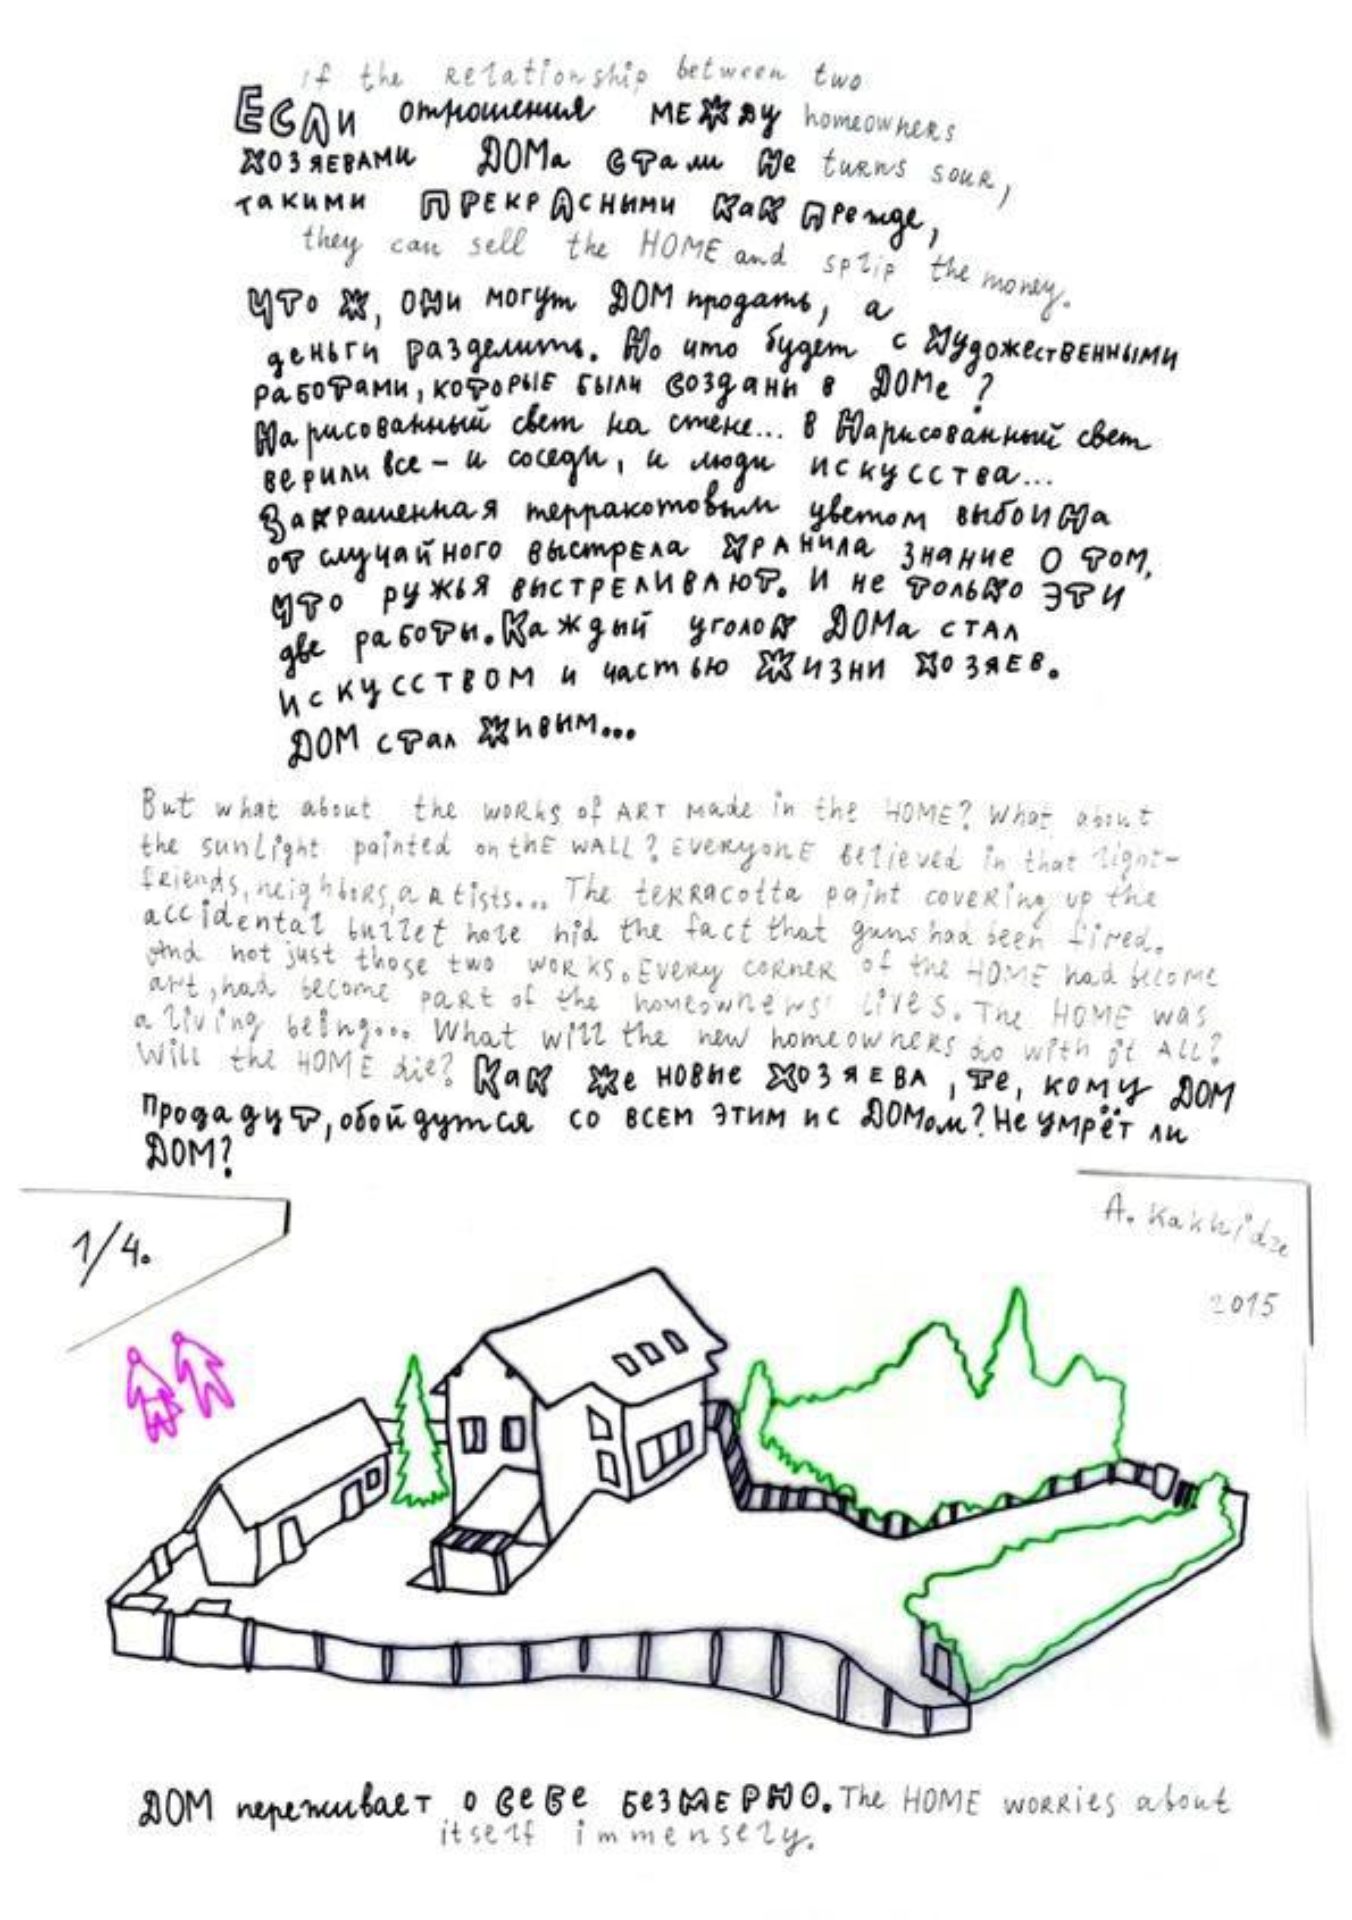 if the Relationship between two
ЕСЛИ отношения МЕЖДУ homeowners
ХОЗЯЕВАМИ ДОМа СТали Не turns sour,
такими ПРЕКРАСНыми КаК Прежде,
they can sell the HOME and split the money.
ЧТо Ж, ОНи могут ДОМ продать, а
деньги разделить. Но что будет с ХУдожестВЕННыми
работами, которые были созданы в ДОМе?
Нарисованный свет на стене... в Нарисованный свет
верили все – и соседи, и люди искусства...
Закрашенная терракотовым цветом выбоиНа
от случайного выстрела ХРАНила знание о том,
ЧТО ружья выстреливают. И не только эти
две работы. Каждый уголок ДОМа стал
искусством и частью Жизни Хозяев.
ДОМ стал Живым...
But what about the works of ART made in the HOME? What about
the sunlight painted on thE WALL? EVERYONE Believed in that light–
friends, neighbors, artists... The terracotta paint covering up the
accidental bullet hole hid the fact that guns had been fired.
And not just those two works. Every corner of the HOME had become
art, had become part of the homeowners' lives. The HOME was
a living being... What will the new homeowners do with it ALL?
Will the HOME die? Как Же новые Хозяева, те, кому ДОМ
Продадут, обойдутся со всем этим и с ДОМом? Не умрёт ли
ДОМ?
1/4.
A. Kakhidze
2015
ДОМ переживает о СеБе безмерно. The HOME worries about
itself immensely.